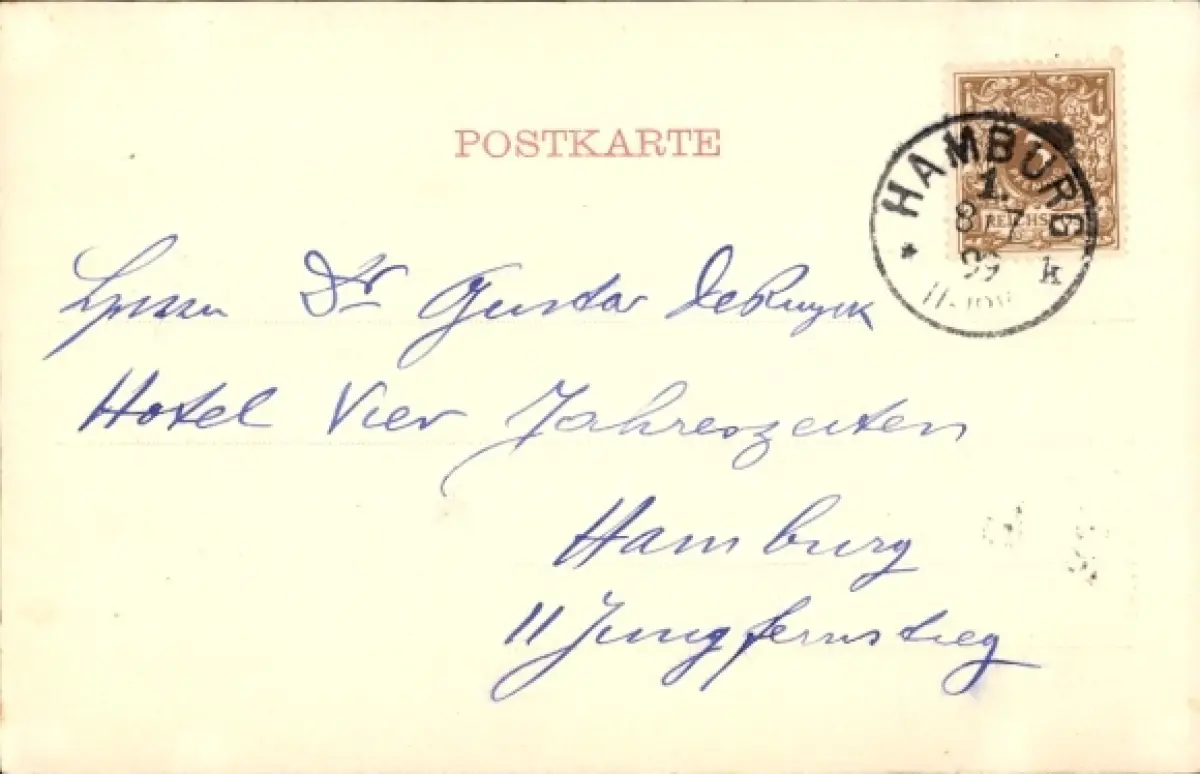 POSTKARTE
HAMBURG
1.
8 7
99 k
REICHSPOST
Herrn Dr Gustav DeRuyck
Hotel Vier Jahreszeiten
Hamburg
11 Jungfernstieg